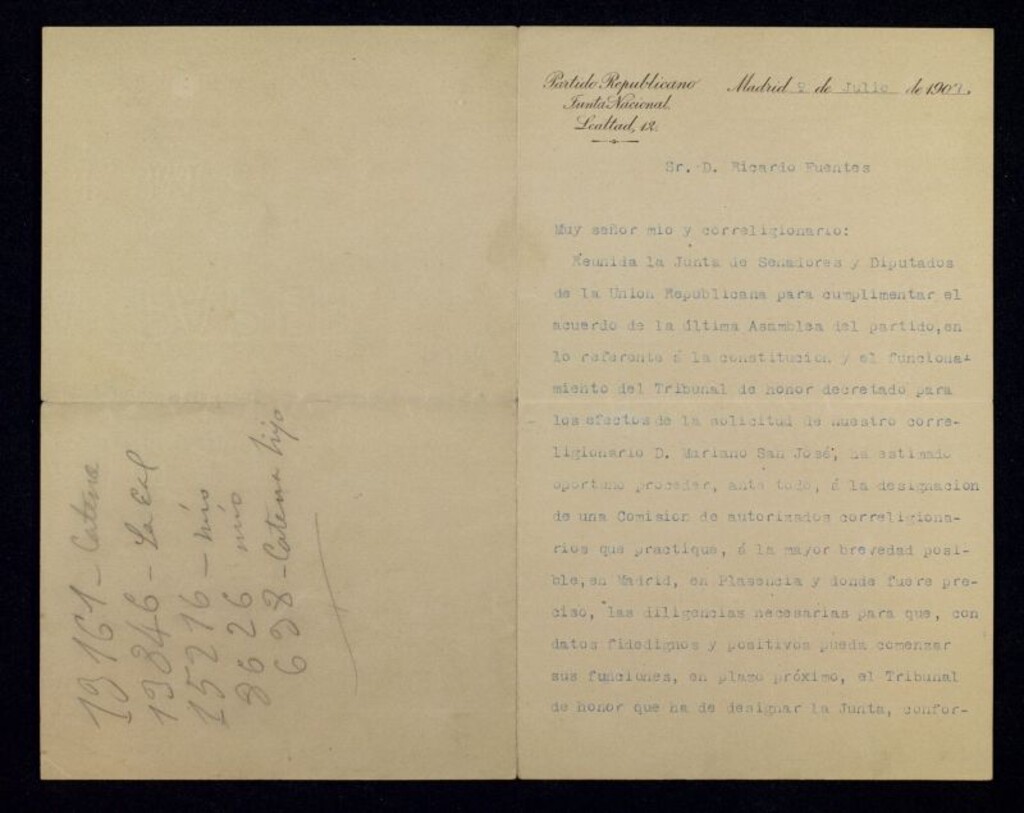 Partido Republicano
Junta Nacional.
Lealtad, 12.
Madrid de Julio de 190
Sr. D. Ricardo Fuentes
Muy señor mio y correligionario:
Reunida la Junta de Senadores y Diputados
de la Union Republicana para cumplimentar el
acuerdo de la última Asamblea del partido, en
lo referente á la constitucion y el funciona-
miento del Tribunal de honor decretado para
los efectos de la solicitud de nuestro corre-
ligionario D. Mariano San José, ha estimado
oportuno proceder, ante todo, á la designacion
de una Comision de autorizados correligiona-
rios que practique, á la mayor brevedad posi-
ble, en Madrid, en Plasencia y donde fuere pre-
ciso, las diligencias necesarias para que, con
datos fidedignos y positivos pueda comenzar
sus funciones, en plazo próximo, el Tribunal
de honor que ha de designar la Junta, confor-
13161 - Catena
13346 -
15216 - mio
8626 mio
638 - Catena hijo